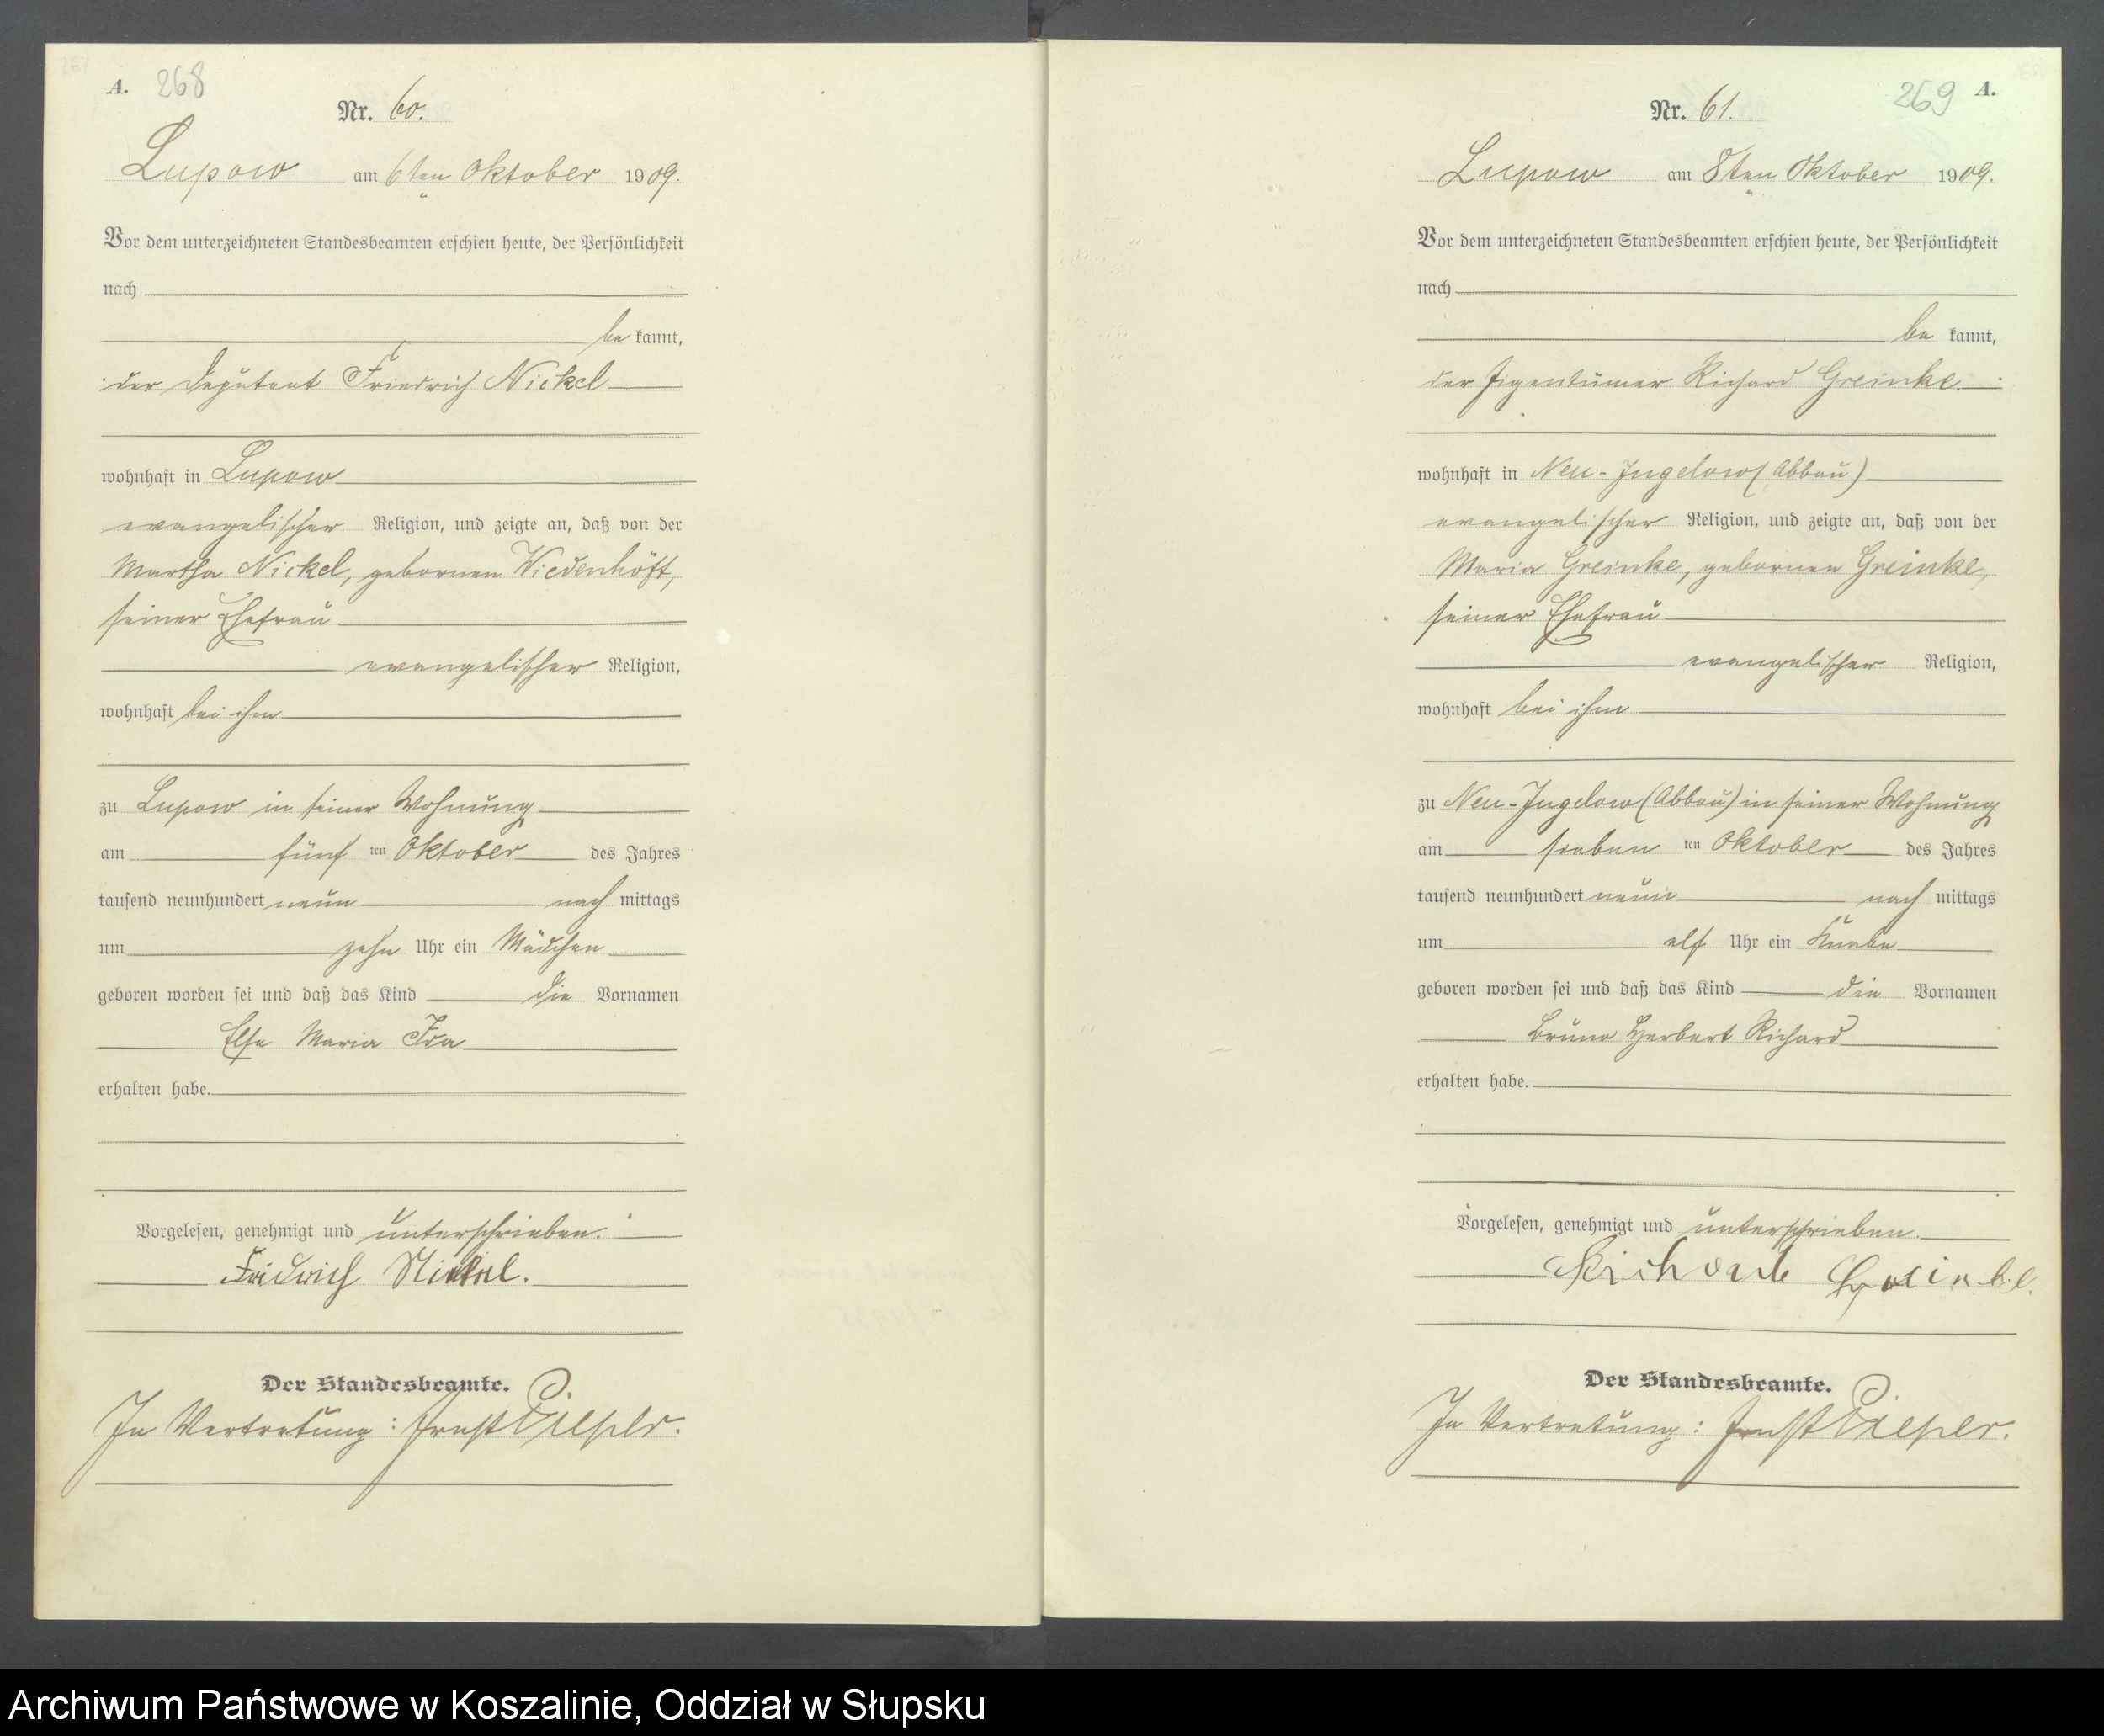 A. 268
Nr. 60.
Lupow am 6ten Oktober 1909.
Vor dem unterzeichneten Standesbeamten erschien heute, der Persönlichkeit
nach
be kannt,
der Deputant Friedrich Nickel
wohnhaft in Lupow
evangelischer Religion, und zeigte an, daß von der
Martha Nickel, gebornen Wiedenhöft,
seiner Ehefrau
evangelischer Religion,
wohnhaft bei ihm
zu Lupow in seiner Wohnung
am fünf ten Oktober des Jahres
tausend neunhundert neun nach mittags
um zehn Uhr ein Mädchen
geboren worden sei und daß das Kind die Vornamen
Else Maria Ida
erhalten habe.
Vorgelesen, genehmigt und unterschrieben.
Fridrich Nickel.
Der Standesbeamte.
In Vertretung: Ernst Pieper.
269 A.
Nr. 61.
Lupow am 8ten Oktober 1909.
Vor dem unterzeichneten Standesbeamten erschien heute, der Persönlichkeit
nach
be kannt,
der Eigentümer Richard Greinke
wohnhaft in Neu-Jugelow (Abbau)
evangelischer Religion, und zeigte an, daß von der
Maria Greinke, gebornen Greinke,
seiner Ehefrau
evangelischer Religion,
wohnhaft bei ihm
zu Neu-Jugelow (Abbau) in seiner Wohnung
am sieben ten Oktober des Jahres
tausend neunhundert neun nach mittags
um elf Uhr ein Knabe
geboren worden sei und daß das Kind die Vornamen
Bruno Herbert Richard
erhalten habe.
Vorgelesen, genehmigt und unterschrieben.
Richard Greinke.
Der Standesbeamte.
In Vertretung: Ernst Pieper.
Archiwum Państwowe w Koszalinie, Oddział w Słupsku